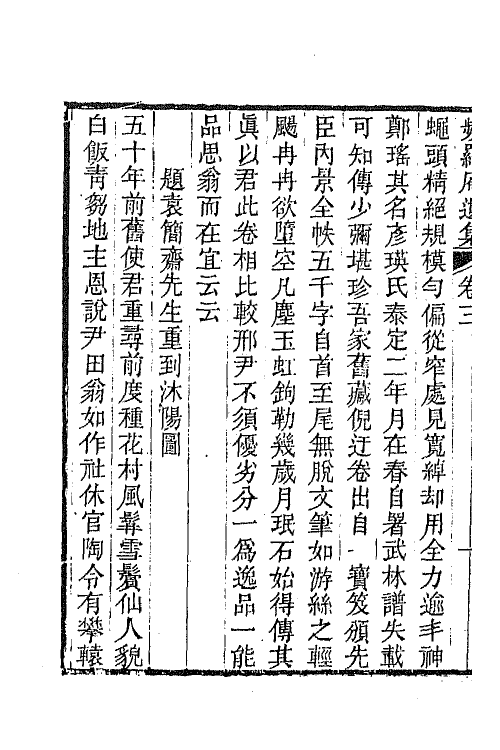 頻羅庵遺集 卷三 一
蠅頭精絕規模勻偏從窄處見寬綽却用全力逾丰神
鄭瑤其名彥瑛氏泰定二年月在春自署武林譜失載
可知傳少彌堪珍吾家舊藏倪迂卷出自 寶笈頒先
臣內景全帙五千字自首至尾無脫文筆如游絲之輕
颺冉冉欲墮空凡塵玉虹鉤勒幾歲月珉石始得傳其
眞以君此卷相比較邢尹不須優劣分一爲逸品一能
品思翁而在宜云云
題袁簡齋先生重到沐陽圖
五十年前舊使君重尋前度種花村風髯雪鬢仙人貌
白飯靑芻地主恩說尹田翁如作社休官陶令有攀轅